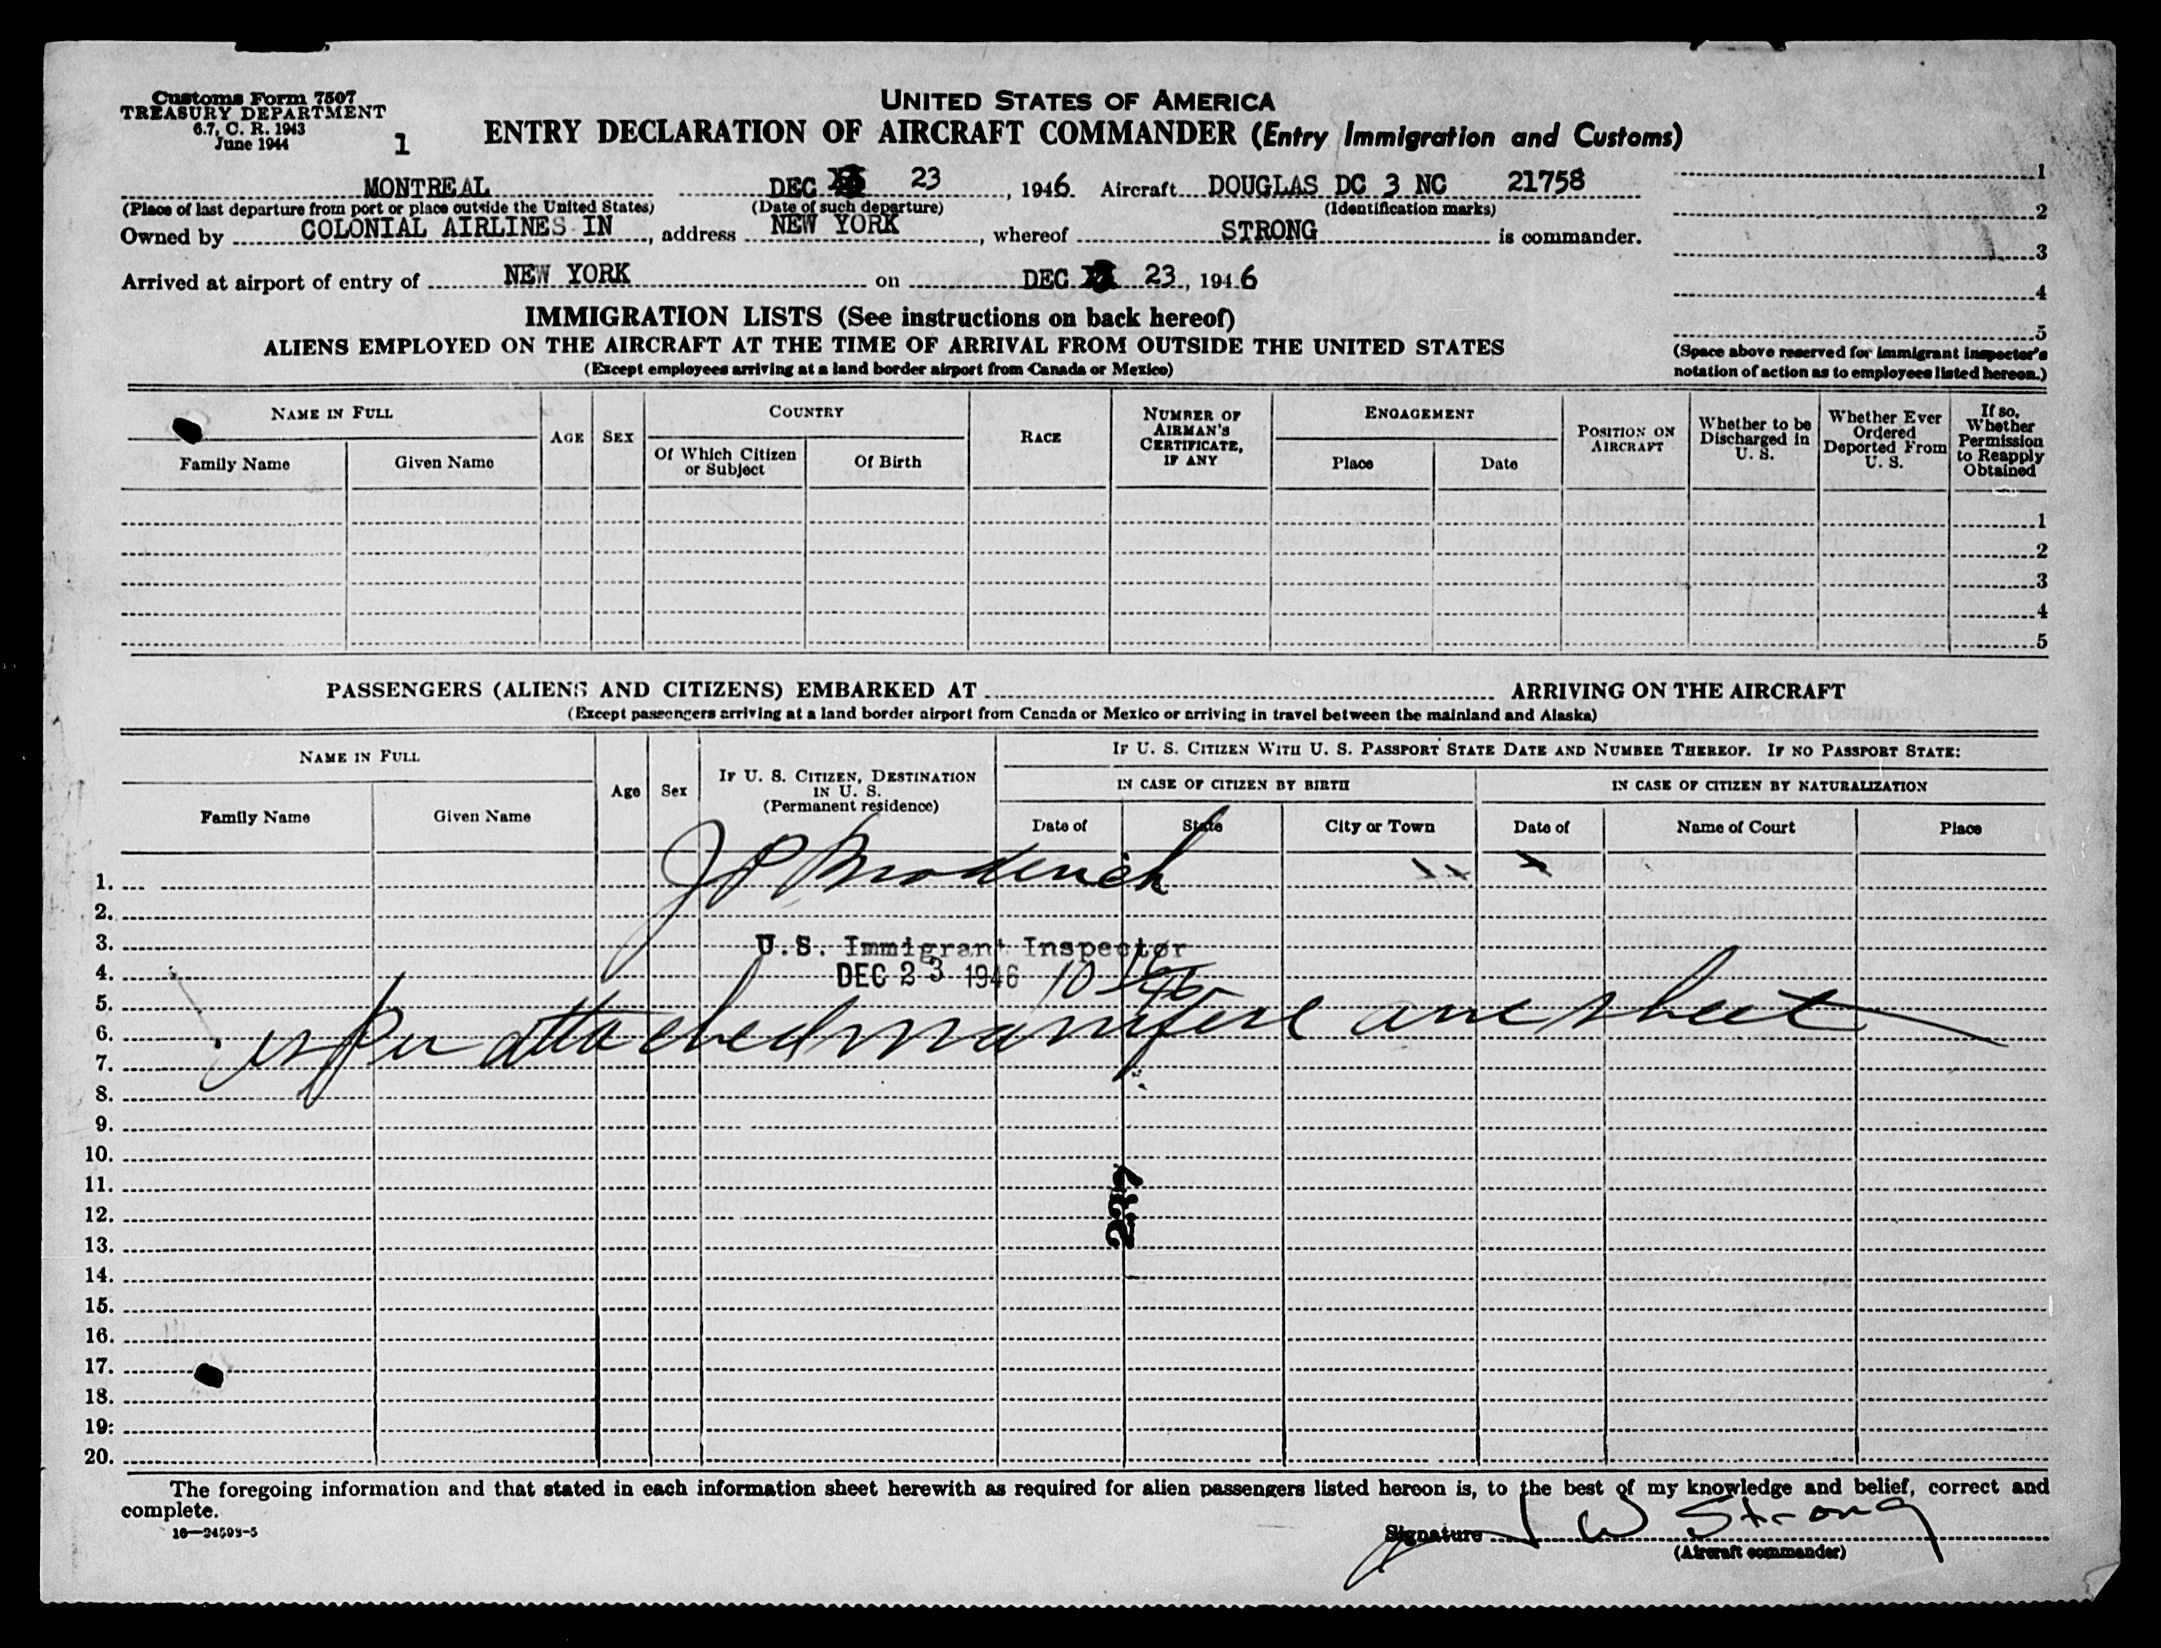 Customs Form 7507
TREASURY DEPARTMENT
6.7, C. R. 1943
June 1944
1
UNITED STATES OF AMERICA
ENTRY DECLARATION OF AIRCRAFT COMMANDER (Entry Immigration and Customs)
MONTREAL DEC 23, 1946 Aircraft DOUGLAS DC 3 NC 21758
(Place of last departure from port or place outside the United States) (Date of such departure) (Identification marks)
Owned by COLONIAL AIRLINES IN, address NEW YORK, whereof STRONG is commander.
Arrived at airport of entry of NEW YORK on DEC 23, 1946
1
2
3
4
5
(Space above reserved for immigrant inspector's
notation of action as to employees listed hereon.)
IMMIGRATION LISTS (See instructions on back hereof)
ALIENS EMPLOYED ON THE AIRCRAFT AT THE TIME OF ARRIVAL FROM OUTSIDE THE UNITED STATES
(Except employees arriving at a land border airport from Canada or Mexico)
NAME IN FULL
Family Name
Given Name
AGE
SEX
COUNTRY
Of Which Citizen
or Subject
Of Birth
RACE
NUMBER OF
AIRMAN'S
CERTIFICATE,
IF ANY
ENGAGEMENT
Place
Date
POSITION ON
AIRCRAFT
Whether to be
Discharged in
U. S.
Whether Ever
Ordered
Deported From
U. S.
If so,
Whether
Permission
to Reapply
Obtained
1
2
3
4
5
PASSENGERS (ALIENS AND CITIZENS) EMBARKED AT ARRIVING ON THE AIRCRAFT
(Except passengers arriving at a land border airport from Canada or Mexico or arriving in travel between the mainland and Alaska)
NAME IN FULL
Family Name
Given Name
Age
Sex
IF U. S. CITIZEN, DESTINATION
IN U. S.
(Permanent residence)
IF U. S. CITIZEN WITH U. S. PASSPORT STATE DATE AND NUMBER THEREOF. IF NO PASSPORT STATE:
IN CASE OF CITIZEN BY BIRTH
Date of
State
City or Town
IN CASE OF CITIZEN BY NATURALIZATION
Date of
Name of Court
Place
1. J P Broderick
2.
3. U.S. Immigrant Inspector
4. DEC 23 1946 10
5.
6. as per attached manifest one sheet
7.
8.
9.
10.
11.
12.
237
13.
14.
15.
16.
17.
18.
19.
20.
The foregoing information and that stated in each information sheet herewith as required for alien passengers listed hereon is, to the best of my knowledge and belief, correct and
complete.
16—24593-5
Signature J W Strong
(Aircraft commander)